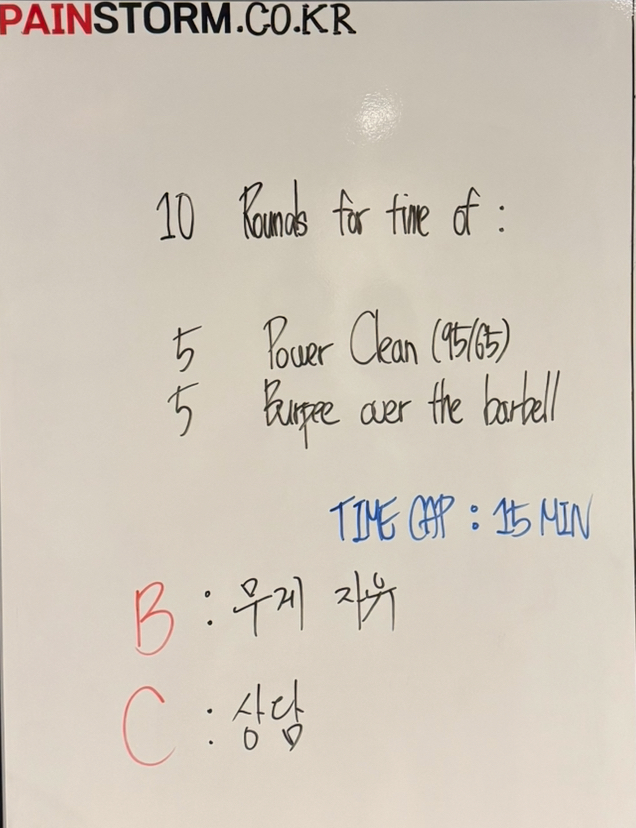 PAINSTORM.CO.KR
10 Rounds for time of :
5 Power Clean (95/65)
5 Burpee over the barbell
TIME CAP : 15 MIN
B : 무게 자유
C : 상담